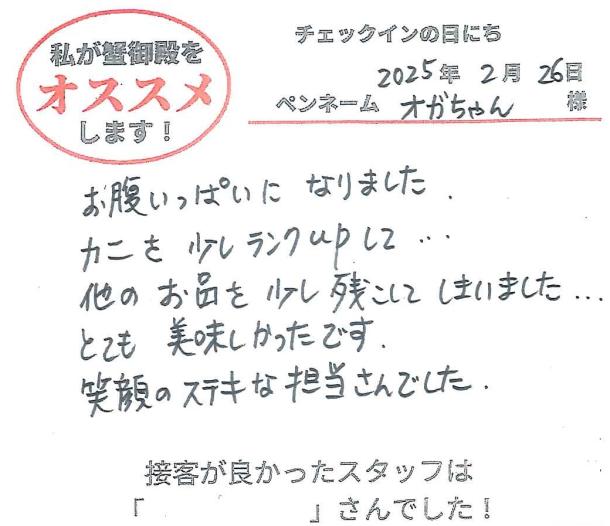 私が蟹御殿を
オススメ
します！
チェックインの日にち
2025年 2月 26日
ペンネーム オガちゃん 様
お腹いっぱいに なりました.
カニを 少しランクupして…
他の お品を 少し残こしてしまいました…
とても 美味しかったです.
笑顔のステキな担当さんでした.
接客が良かったスタッフは
「 」さんでした！